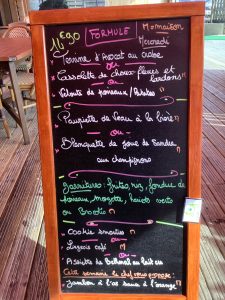 16€90 FORMULE M = maison
Mercredi
Terrine d'Avocat au crabe
ou
Cassolette de choux-fleurs et lardons
ou
Velouté de poireaux / Patates
Paupiette de Veau à la bière
ou
Blanquette de Joue de
aux champignons
Garnitures : frites, riz, fondue de
poireaux, haricots verts
ou
Cookie smarties
ou
café
ou
Assiette de au lait cru
Cette semaine le chef vous propose :
Jambon à l'os sauce à l'orange